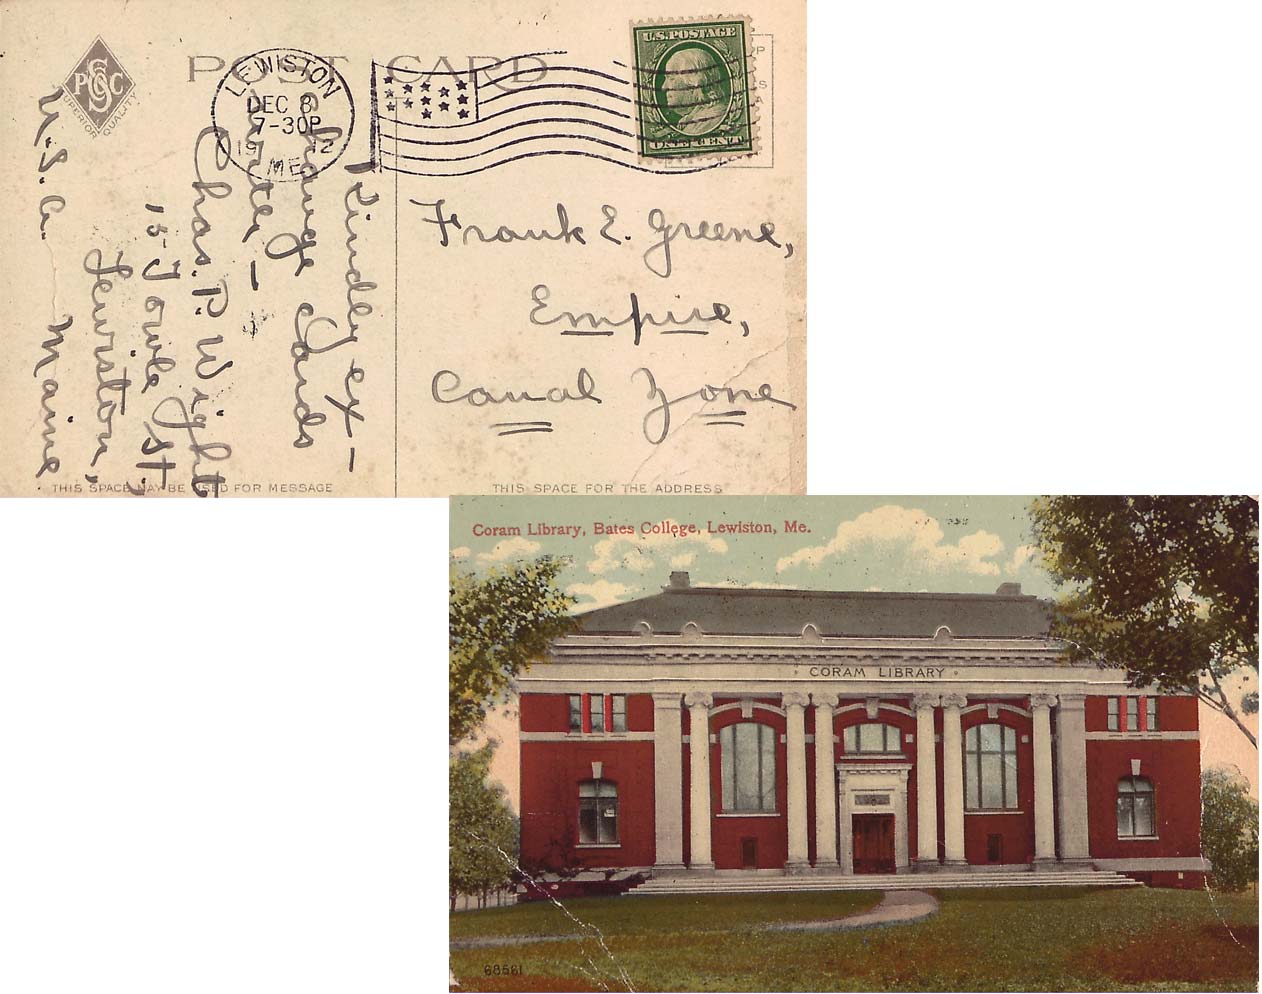 POST CARD
S
P C
Co
SUPERIOR
QUALITY
LEWISTON
DEC 8
7-30P
19 2
ME.
U.S. POSTAGE
ONE CENT
Kindly ex-
change cards
Chas. P. Wight
15- Towle St.,
Lewiston,
Maine
U.S.A.
Frank E. Greene,
Empire,
Canal Zone
THIS SPACE MAY BE USED FOR MESSAGE
THIS SPACE FOR THE ADDRESS
Coram Library, Bates College, Lewiston, Me.
CORAM LIBRARY
68561